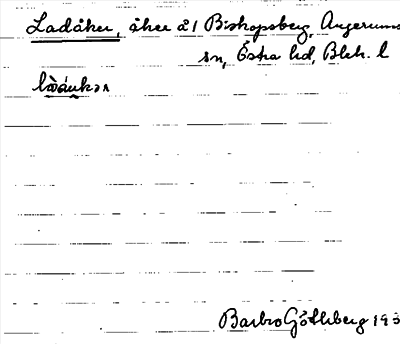 Ladåker, åker å 1 Biskopsberg, Augerums
sn, Östra hd, Blek. l
Barbro Göthberg 193